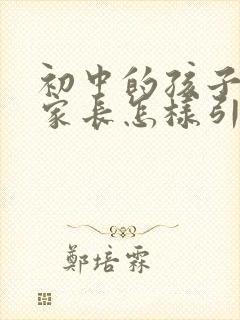 初中的孩子
家长怎样引
鄭培霖